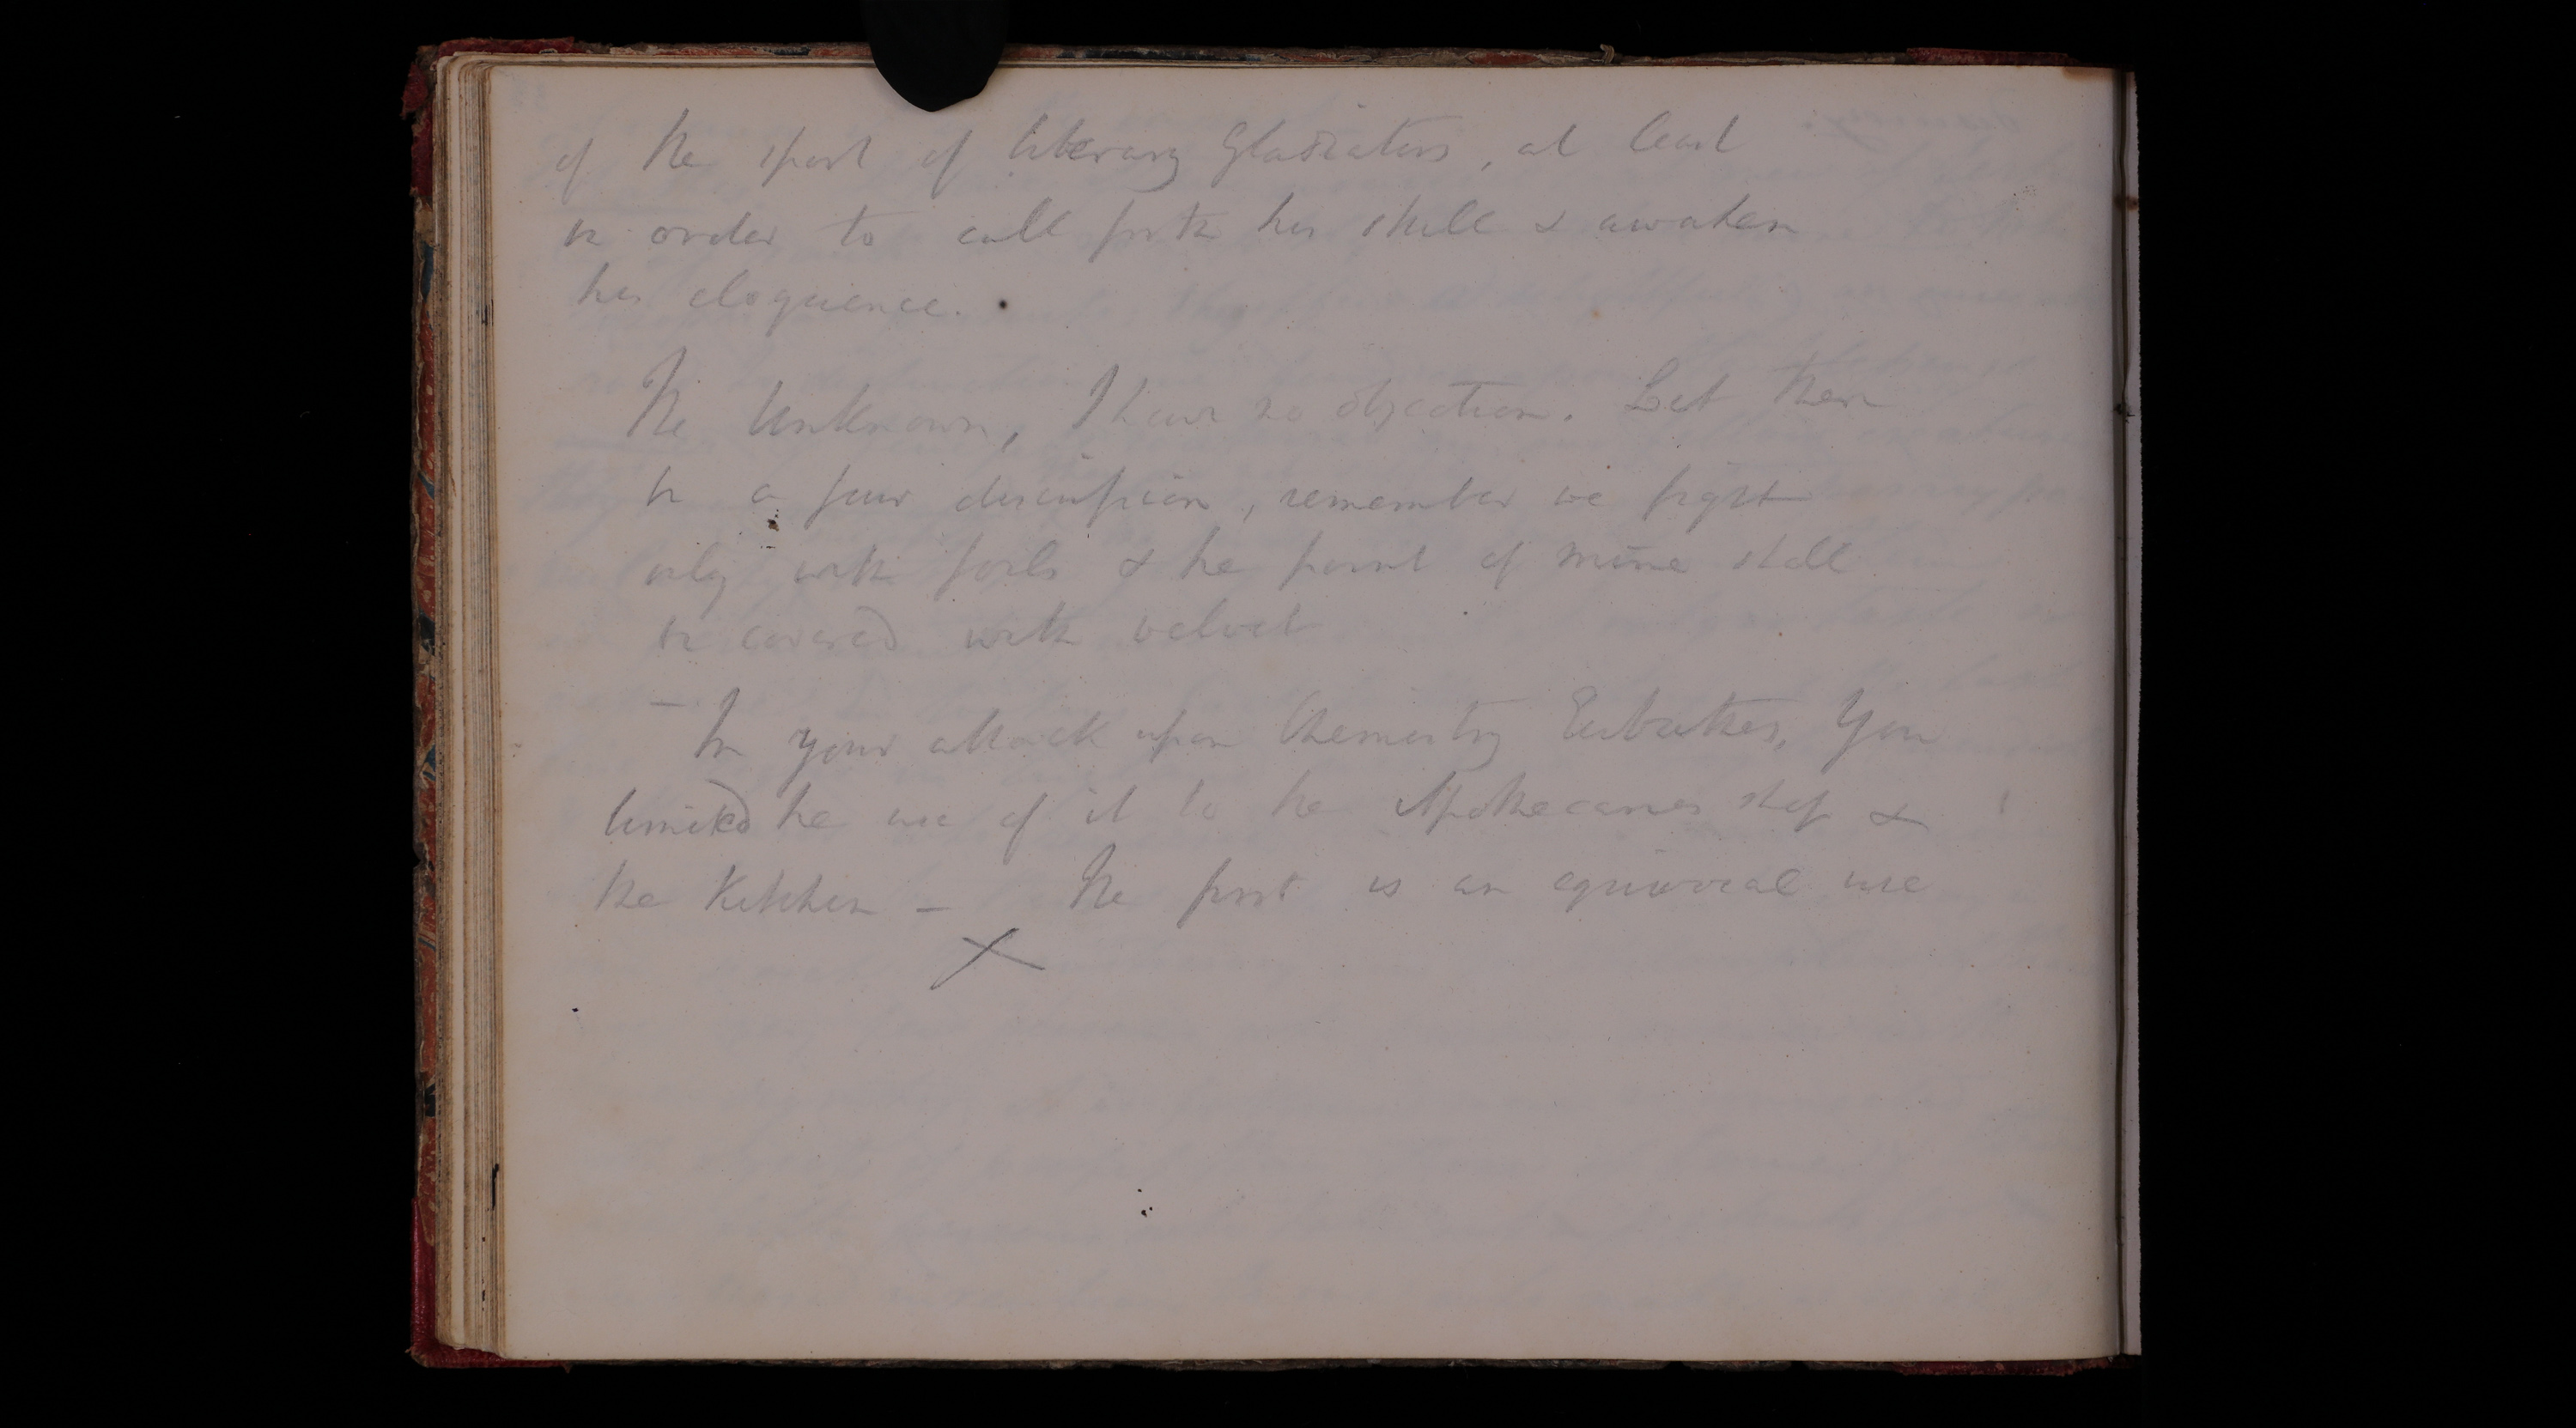 of the sport of literary Gladiators, at least
in order to call forth his skill & awaken
his eloquence.
The Unknown, I have no objection. Let there
be a fair discussion, remember we fight
only with foils & the point of mine shall
be covered with velvet
- In your attack upon Chemistry Eubathes, You
limited the use of it to the Apothecaries shop &
the Kitchen - The first is an equivocal use
X